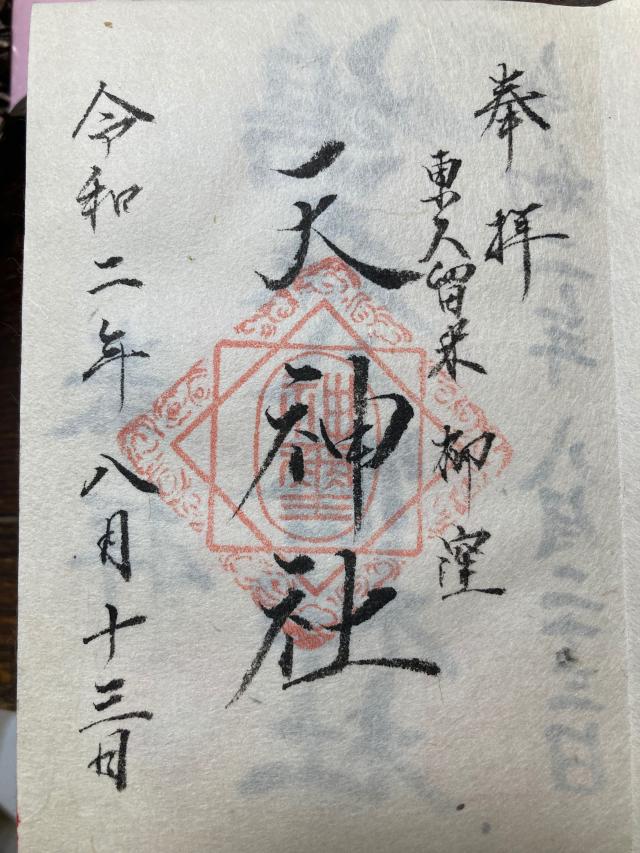 奉拝
東久留米 柳窪
天神社
令和二年八月十三日